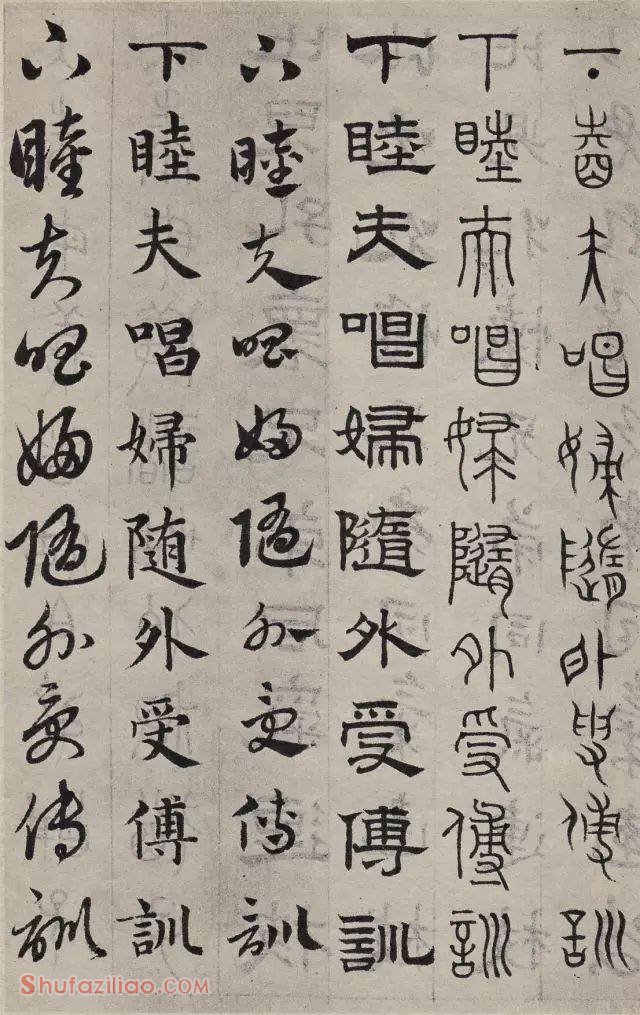 下睦夫唱婦隨外受傅訓
下睦夫唱婦隨外受傅訓
下睦夫唱婦隨外受傅訓
下睦夫唱婦随外受傅訓
下睦夫唱婦随外受傅訓
下睦夫唱婦随外受傅訓
Shufaziliao.COM